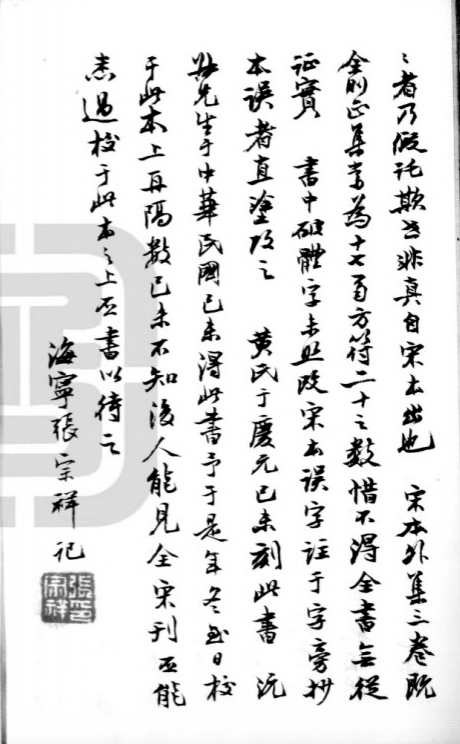 〻者乃假託欺世非真自宋本出也 宋本外集三卷既
全則正集當為十七卷方符二十之數惜不得全書無從
证實 書中破體字未照改宋本誤字註于字旁抄
本誤者直塗改之 黄氏于慶元己未刻此書沅
叔先生于中華民國己未得此書予于是年冬至日校
于此本上再隔數己未不知後人能見全宋刊而能
悉過校于此本之上否書以待之
海寧張宗祥記
張宗祥印